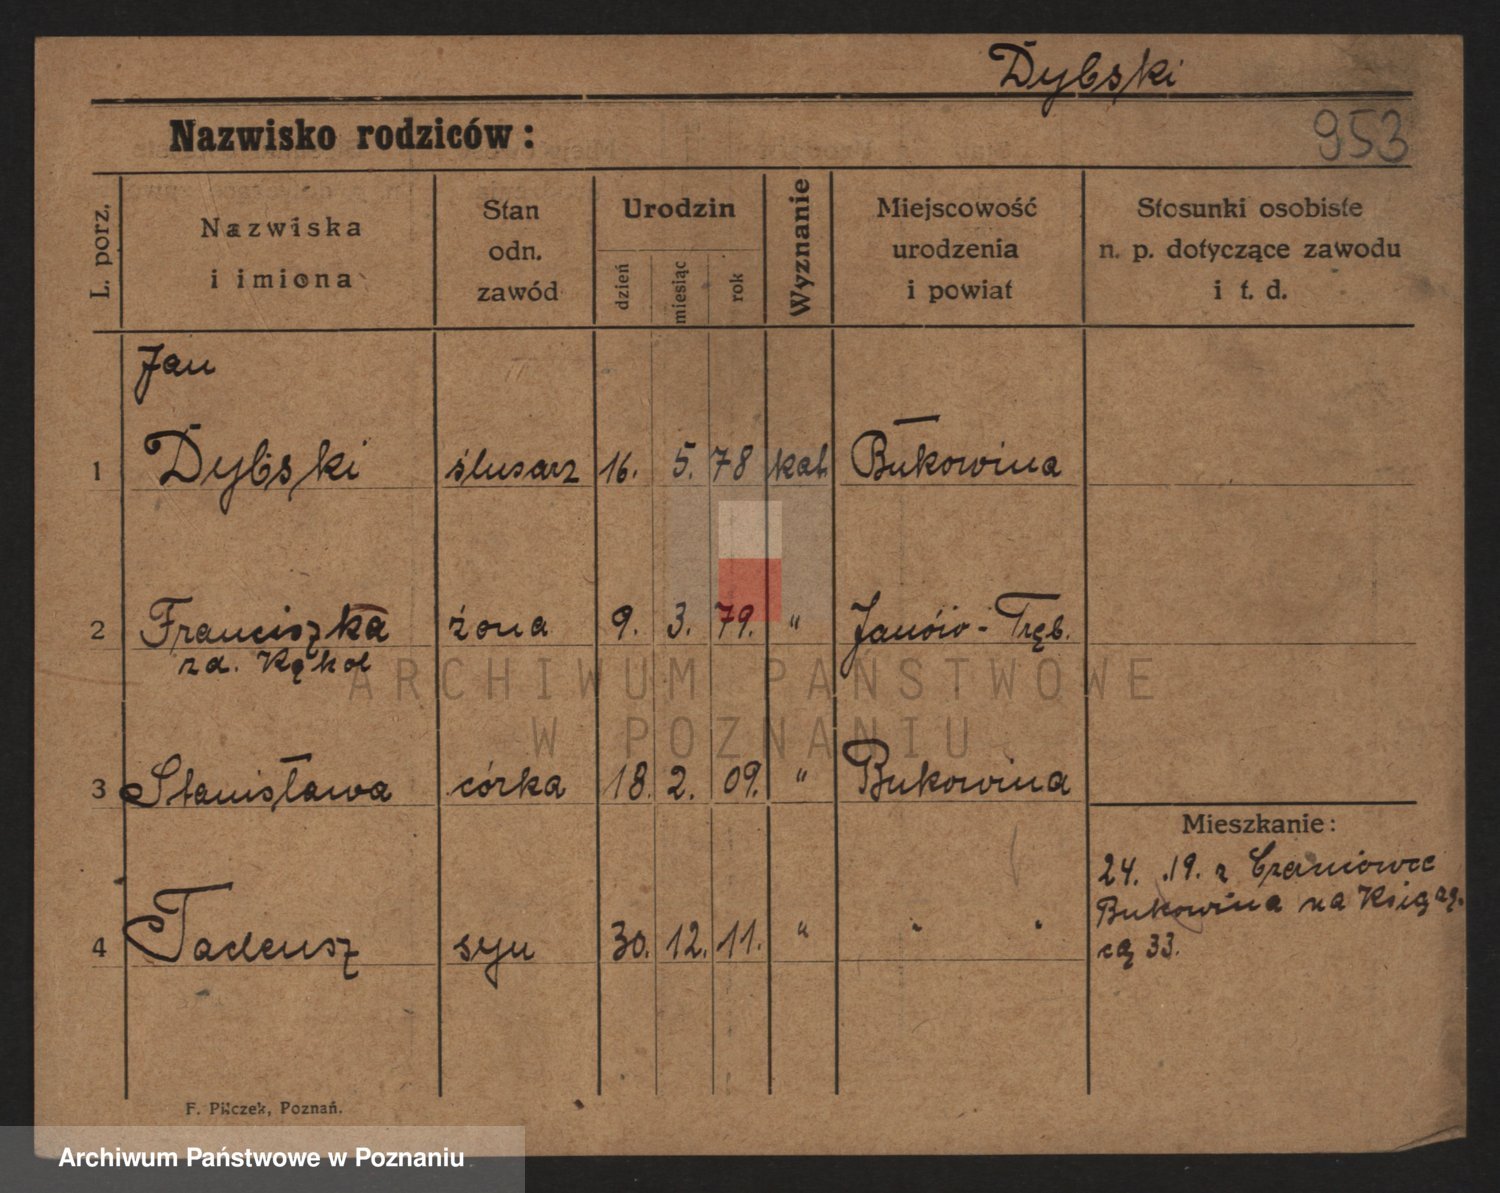 Dybski
Nazwisko rodziców:
953
L. porz.
Nazwiska
i imiona
Stan
odn.
zawód
Urodzin
dzień
miesiąc
rok
Wyznanie
Miejscowość
urodzenia
i powiat
Stosunki osobiste
n. p. dotyczące zawodu
i t. d.
Jan
1 Dybski ślusarz 16. 5. 78 kat. Bukowina
2 Franciszka żona 9. 3. 79. " Janów-Tręb.
zd. Kąkol
3 Stanisława córka 18. 2. 09. " Bukowina
Mieszkanie:
24. .19. z
Bukowina na Książę.
cą 33.
4 Tadeusz syn 30. 12. 11. " " "
F. Pilczek, Poznań.
ARCHIWUM PAŃSTWOWE
W POZNANIU
Archiwum Państwowe w Poznaniu